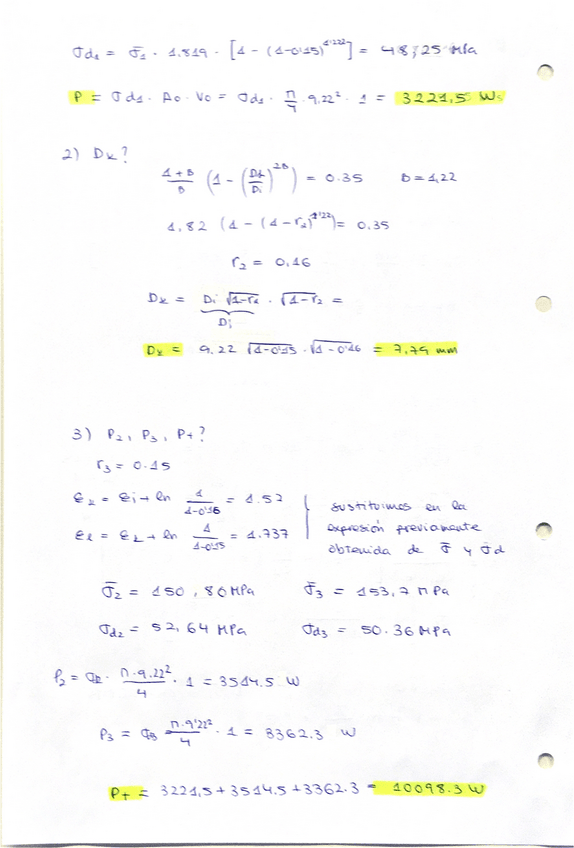 σd₁ = σ̄₁ · 1.819 · [1 - (1-0'15)^1'222] = 48,25 MPa
P = σd₁ · A₀ · V₀ = σd₁ · π/4 · 9,22² · 1 = 3221,5 W
2) Dk?
(1+B)/B (1 - (Dk/Di)^2B) = 0.35    B = 1,22
1,82 (1 - (1-r₂)^1'22) = 0,35
r₂ = 0,16
Dk = Di √(1-r₁) · √(1-r₂) =
Dj
Dk = 9.22 √(1-0'15) · √(1-0'16) = 7,79 mm
3) P₂, P₃, P+?
r₃ = 0.15
εk = εi + ln 1/(1-0'16) = 1.57
εl = εk + ln 1/(1-0'15) = 1.737
sustituimos en la
expresión previamente
obtenida de σ̄ y σd
σ̄₂ = 150,86 MPa    σ̄₃ = 153,7 MPa
σd₂ = 52,64 MPa    σd₃ = 50.36 MPa
P₂ = σd₂ · π·9.22²/4 · 1 = 3514.5 W
P₃ = σd₃ π·9'22²/4 · 1 = 3362.3 W
P+ = 3221,5+3514.5+3362.3 = 10098.3 W